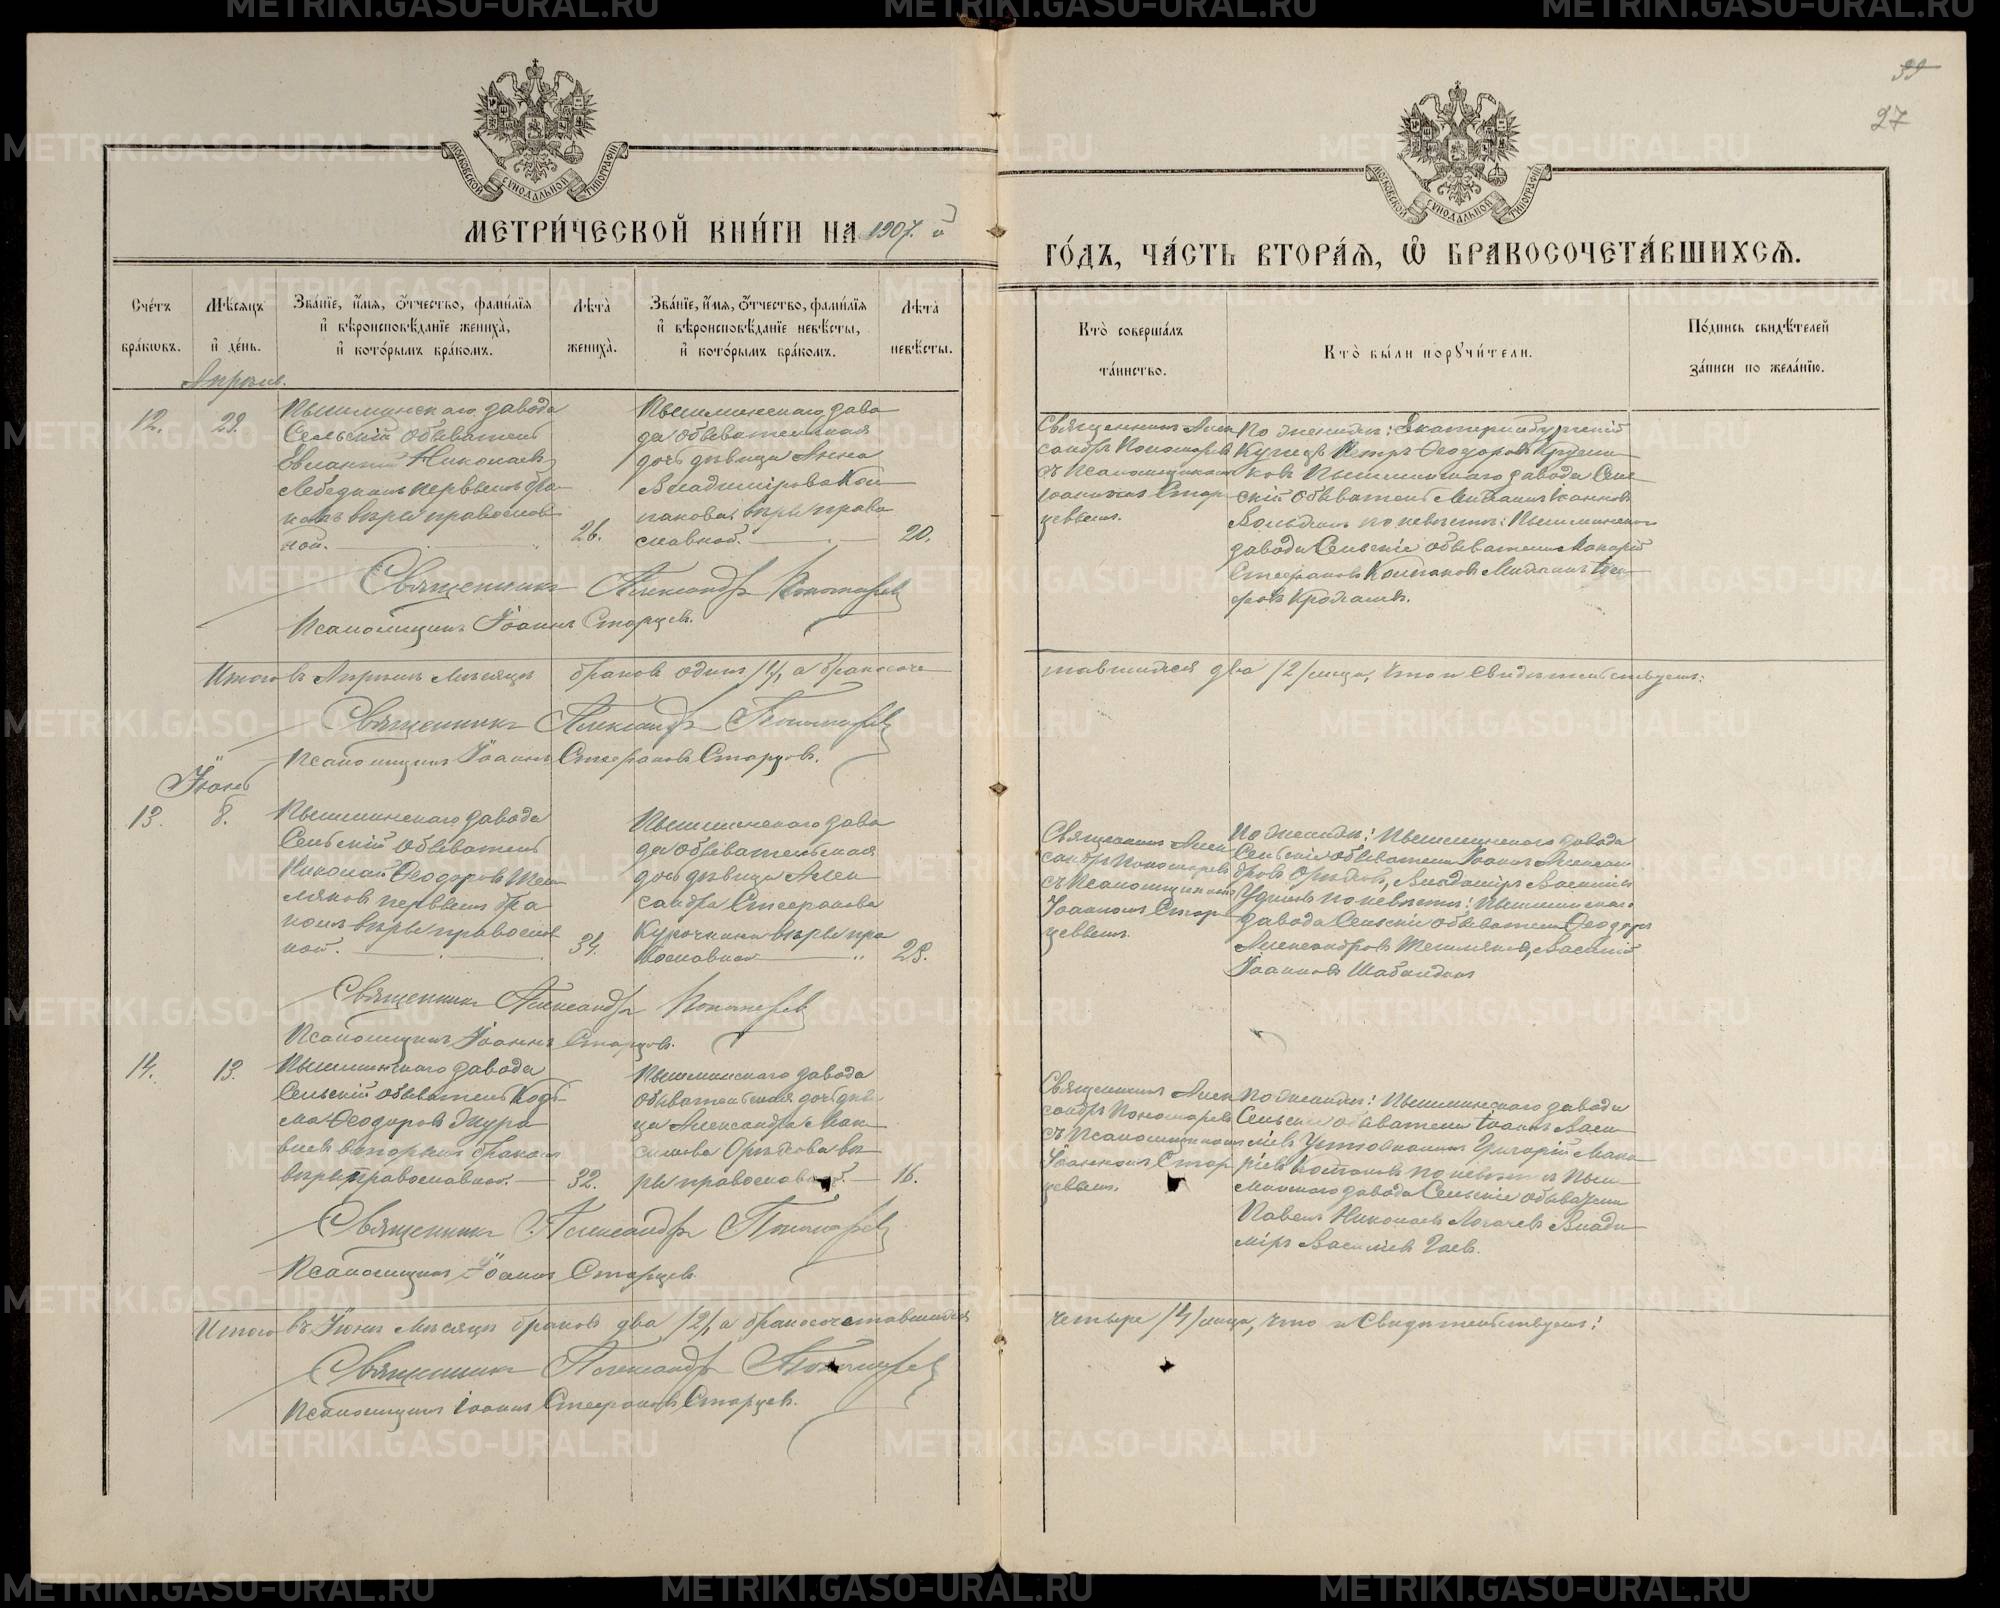 99
27
МОСКОВСКОЙ СѴНОДАЛЬНОЙ ТИПОГРАФІИ
МОСКОВСКОЙ СѴНОДАЛЬНОЙ ТИПОГРАФІИ
МЕТРИ́ЧЕСКОЙ КНИ́ГИ НА 1907. й
ГО́ДЪ, ЧА́СТЬ ВТОРА́Ѧ, Ѽ БРАКОСОЧЕТА́ВШИХСѦ.
Сче́тъ бра́кѡвъ.
Мѣ́сѧцъ и҆ де́нь.
Зва́нїе, и҆́мѧ, ѻ҆́тчество, фами́лїѧ
и҆ вѣроисповѣ́данїе жениха̀,
и҆ кото́рымъ бра́комъ.
Лѣ́та жениха̀.
Зва́нїе, и҆́мѧ, ѻ҆́тчество, фами́лїѧ
и҆ вѣроисповѣ́данїе невѣ́сты,
и҆ кото́рымъ бра́комъ.
Лѣ́та невѣ́сты.
Кто̀ соверша́лъ та́инство.
Кто̀ бы́ли порꙋчи́тели.
По́дпись свидѣ́телей за́писи по жела́нїю.
Апрѣль.
12.
29.
Пышминскаго завода
Сельскій обыватель
Евлампій Николаевъ
Лебедкинъ первымъ бра-
комъ вѣры православ
ной.
26.
Пышминскаго заво
да обывательская
дочь дѣвица Анна
Владимірова Кол
пакова, вѣры право
славной.
20.
Священникъ Алек
сандръ Пономаревъ
съ Псаломщикомъ
Іоанномъ Стар
цевымъ.
По женихѣ: Екатеринбургскій
Купецъ Петръ Ѳеодоровъ
ковъ Пышминскаго завода Сель
скій обыватель Михаилъ Іоанновъ
по невѣстѣ: Пышминскаго
завода Сельскіе обыватели Макарій
Стефановъ Колпаковъ Михаилъ
ровъ
Священникъ Александръ Пономаревъ
Псаломщикъ Іоаннъ Старцевъ.
Итого въ Апрѣлѣ мѣсяцѣ браковъ одинъ /1/, а бракосоче
тавшихся два /2/ лица, что и свидѣтельствуемъ:
Священникъ Александръ Пономаревъ
Псаломщикъ Іоаннъ Стефановъ Старцевъ.
Іюнь
13.
8.
Пышминскаго завода
Сельскій обыватель
Николай Ѳеодоровъ Шем
ляковъ первымъ бра
комъ вѣры православ
ной.
34.
Пышминскаго заво
да обывательская
дочь дѣвица Алек
сандра Стефанова
Курочкина вѣры пра
вославной
23.
Священникъ Алек
сандръ Пономаревъ
съ Псаломщикомъ
Іоанномъ Стар
цевымъ.
По женихѣ: Пышминскаго завода
Сельскіе обыватели Іоаннъ Алексан
дровъ Орѣховъ, Владиміръ Василіевъ
по невѣстѣ: Пышминскаго
завода Сельскіе обыватели Ѳеодоръ
Александровъ Шемляковъ, Василій
Іоанновъ
Священникъ Александръ Пономаревъ
Псаломщикъ Іоаннъ Старцевъ.
14.
13.
Пышминскаго завода
Сельскій обыватель Козь
ма Ѳеодоровъ Жура
влевъ вторымъ бракомъ
вѣры православной.
32.
Пышминскаго завода
обывательская дочь дѣви
ца Александра Мак
симова Орѣхова вѣ
ры православной.
16.
Священникъ Алек
сандръ Пономаревъ
съ Псаломщикомъ
Іоанномъ Стар
цевымъ.
По женихѣ: Пышминскаго завода
Сельскіе обыватели Іоаннъ Васи
ліевъ Григорій Мака
ріевъ Колпаковъ по невѣстѣ Пыш
минскаго завода Сельскіе обыватели
Павелъ Николаевъ Логачевъ Влади
міръ Василіевъ Гаевъ.
Священникъ Александръ Пономаревъ
Псаломщикъ Іоаннъ Старцевъ.
Итого въ Іюнѣ мѣсяцѣ браковъ два /2/, а бракосочетавшихся
четыре /4/ лица, что и свидѣтельствуемъ:
Священникъ Александръ Пономаревъ
Псаломщикъ Іоаннъ Стефановъ Старцевъ.
METRIKI.GASO-URAL.RU